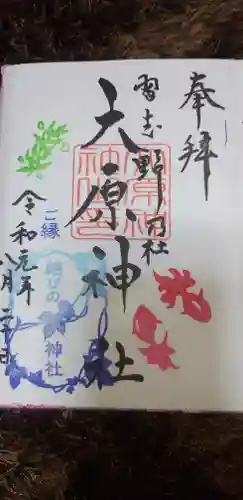 奉拝
習志野乃社
大原神社
ご縁
結びの
神社
令和元年
八月